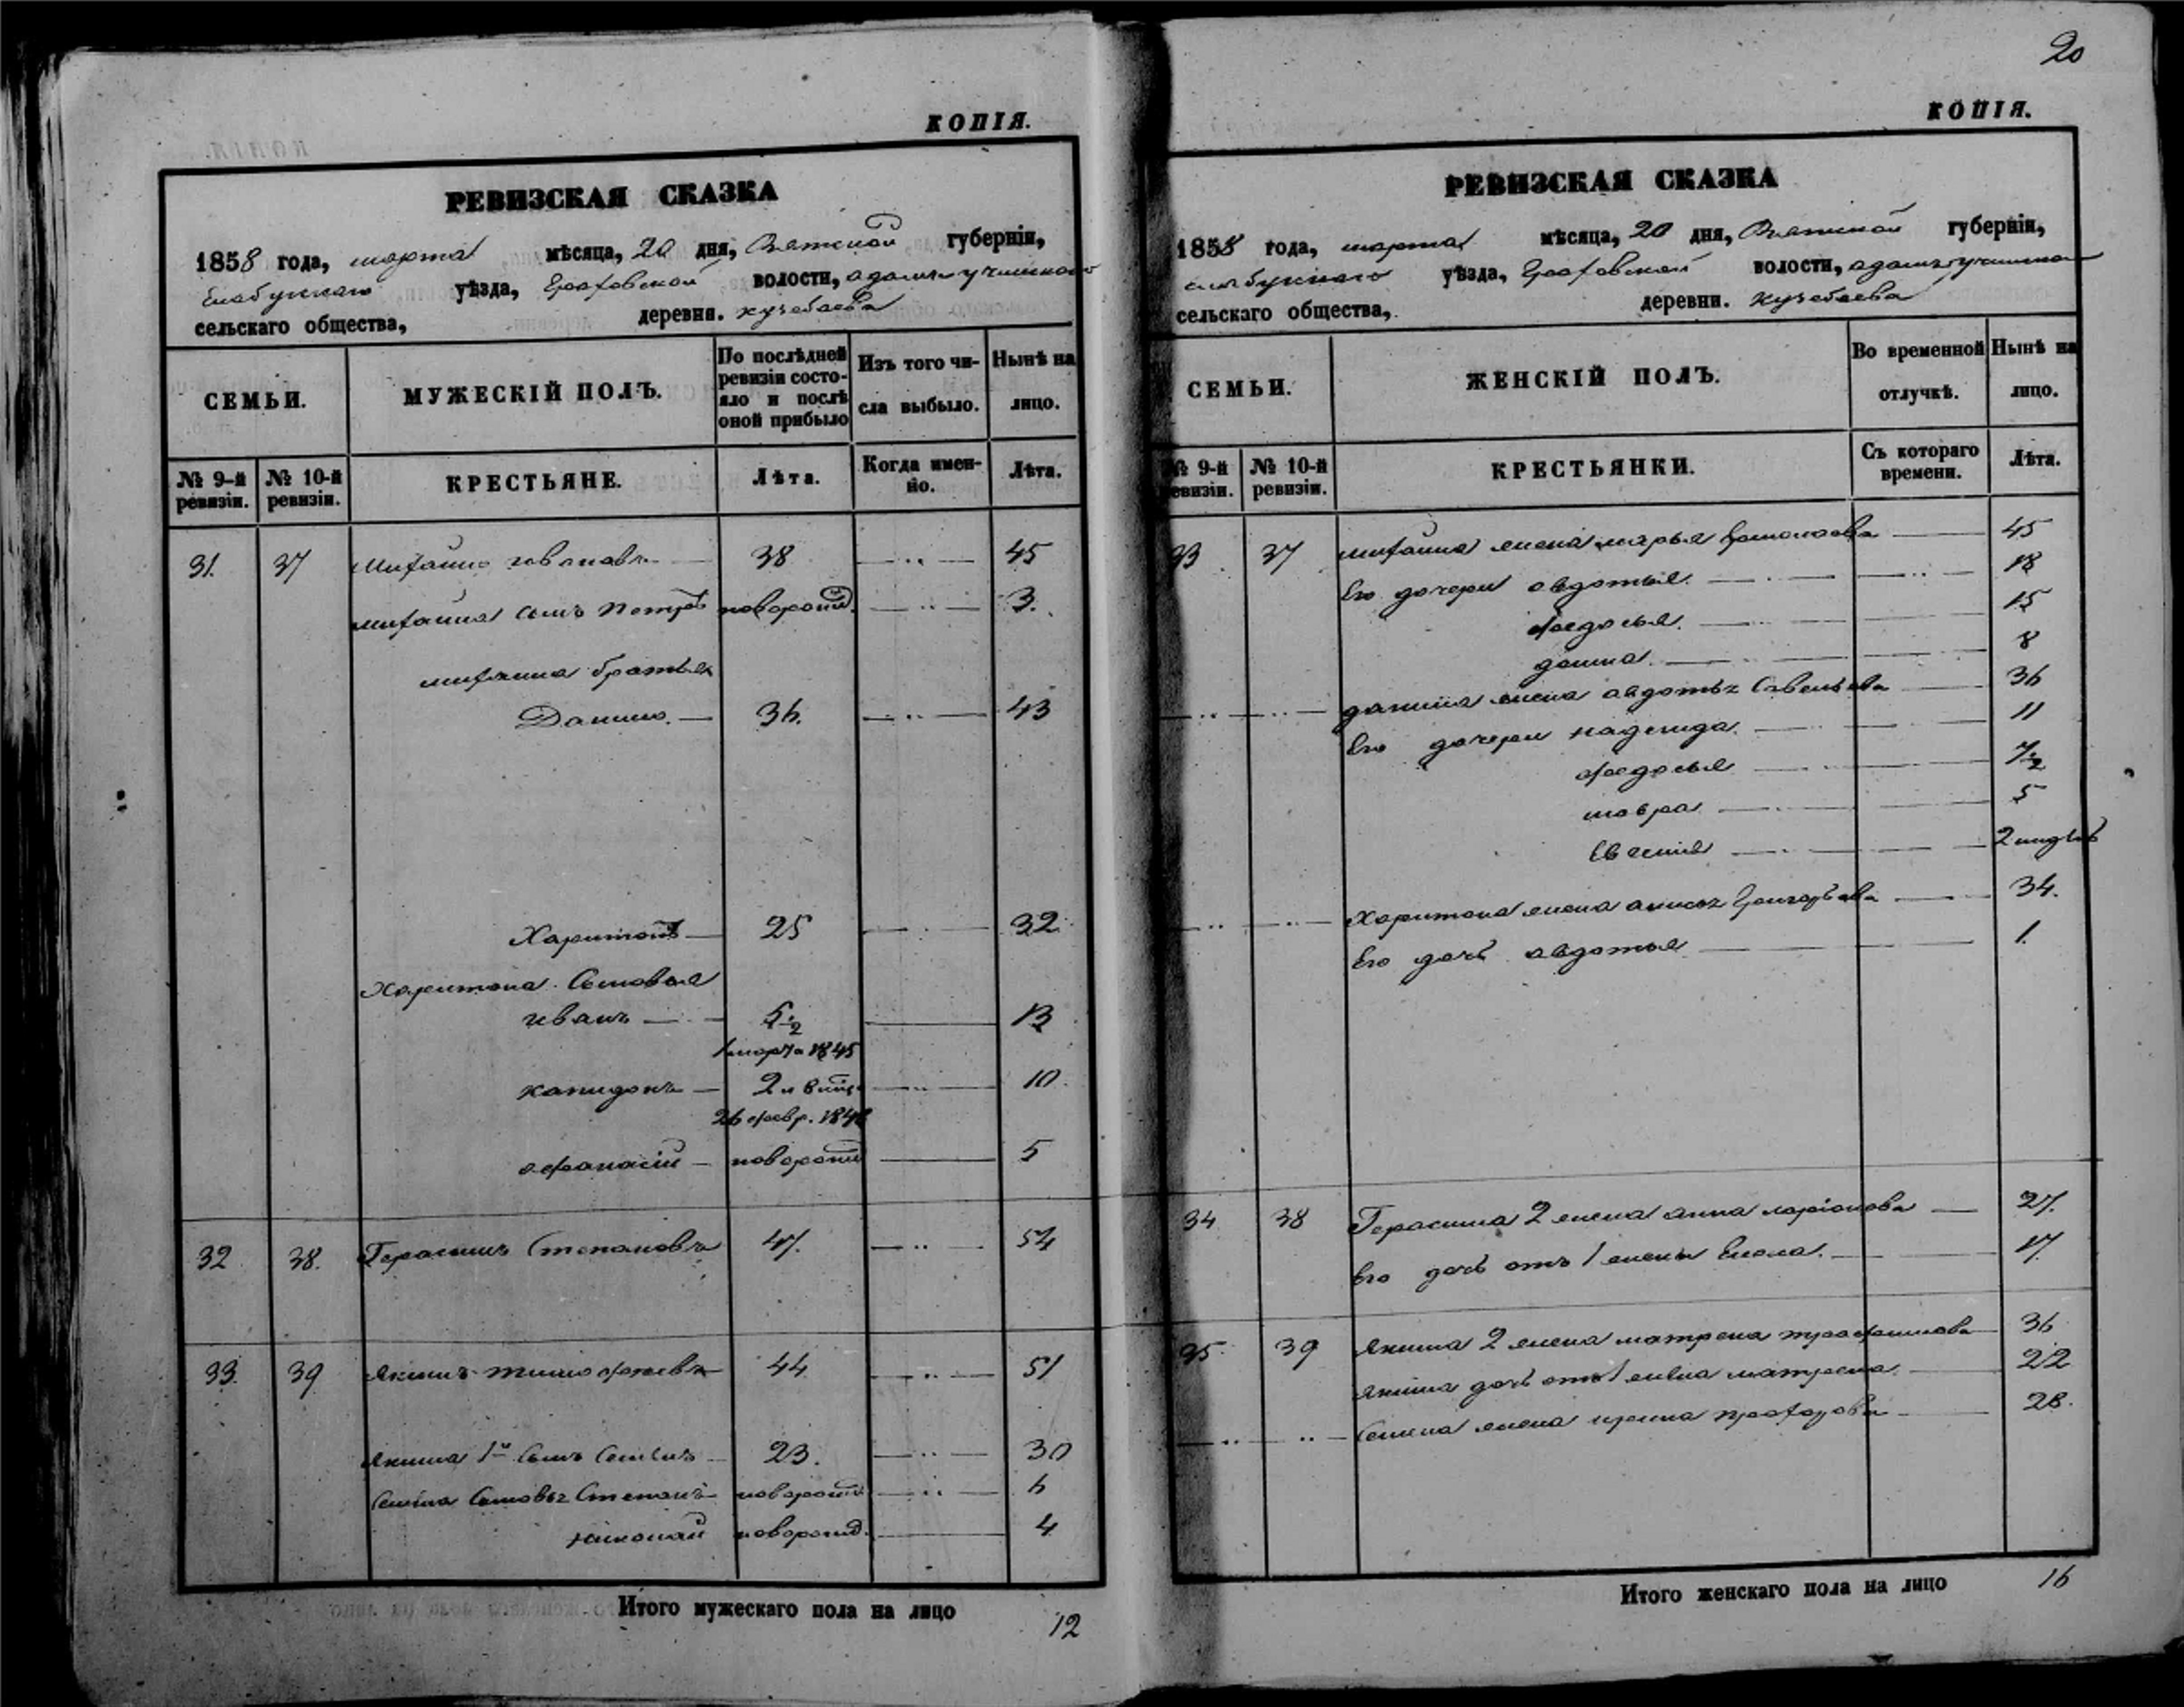 20
КОПІЯ.
РЕВИЗСКАЯ СКАЗКА
1858 года, марта мѣсяца, 20 дня, Вятской губерніи,
Елабужскаго уѣзда, Граховской волости,
сельскаго общества, деревни. кузебаева
СЕМЬИ.
МУЖЕСКІЙ ПОЛЪ.
По послѣдней ревизіи состояло и послѣ оной прибыло
Изъ того числа выбыло.
Нынѣ на лицо.
№ 9-й ревизіи.
№ 10-й ревизіи.
КРЕСТЬЯНЕ.
Лѣта.
Когда именно.
Лѣта.
31. 37 Михаило ивановъ 38 45
михаила сынъ петръ новорожд. 3.
михаила братья
Данило. 36. 43
Харитонъ 25 32
Харитона Сыновья
иванъ 5 1/2 13
1 марта 1845
капидонъ 2 и 8 мѣс. 10
26 февр. 1848
афанасій новорожд 5
32 38. Герасимъ Степановъ 47. 54
33. 39 Якимъ тимофеевъ 44 51
Якима 1й сынъ Семенъ 23. 30
Семена Сыновья Степанъ новорожд 6
николай новорожд. 4
Итого мужескаго пола на лицо 12
КОПІЯ.
РЕВИЗСКАЯ СКАЗКА
1858 года, марта мѣсяца, 20 дня, Вятской губерніи,
елабужскаго уѣзда, Граховской волости,
сельскаго общества, деревни. кузебаева
СЕМЬИ.
ЖЕНСКІЙ ПОЛЪ.
Во временной отлучкѣ.
Нынѣ на лицо.
№ 9-й ревизіи.
№ 10-й ревизіи.
КРЕСТЬЯНКИ.
Съ котораго времени.
Лѣта.
33 37 михаила жена марья Ермолаева 45
Его дочери авдотья. 18
федосья. 15
домна. 8
данила жена авдотья Савельева 36
Его дочери надежда. 11
федосья 7 1/2
мавра 5
Евгенія 2 недѣль
Харитона жена анисья Григорьева 34.
Его дочь авдотья 1.
34 38 Герасима 2 жена анна ларіонова 27.
Его дочь отъ 1 жены Елена. 17.
35. 39 Якима 2 жена матрена трофимова 36
Якима дочь отъ 1 жены матрена. 22
Семена жена ирина прохорова 28.
Итого женскаго пола на лицо 16